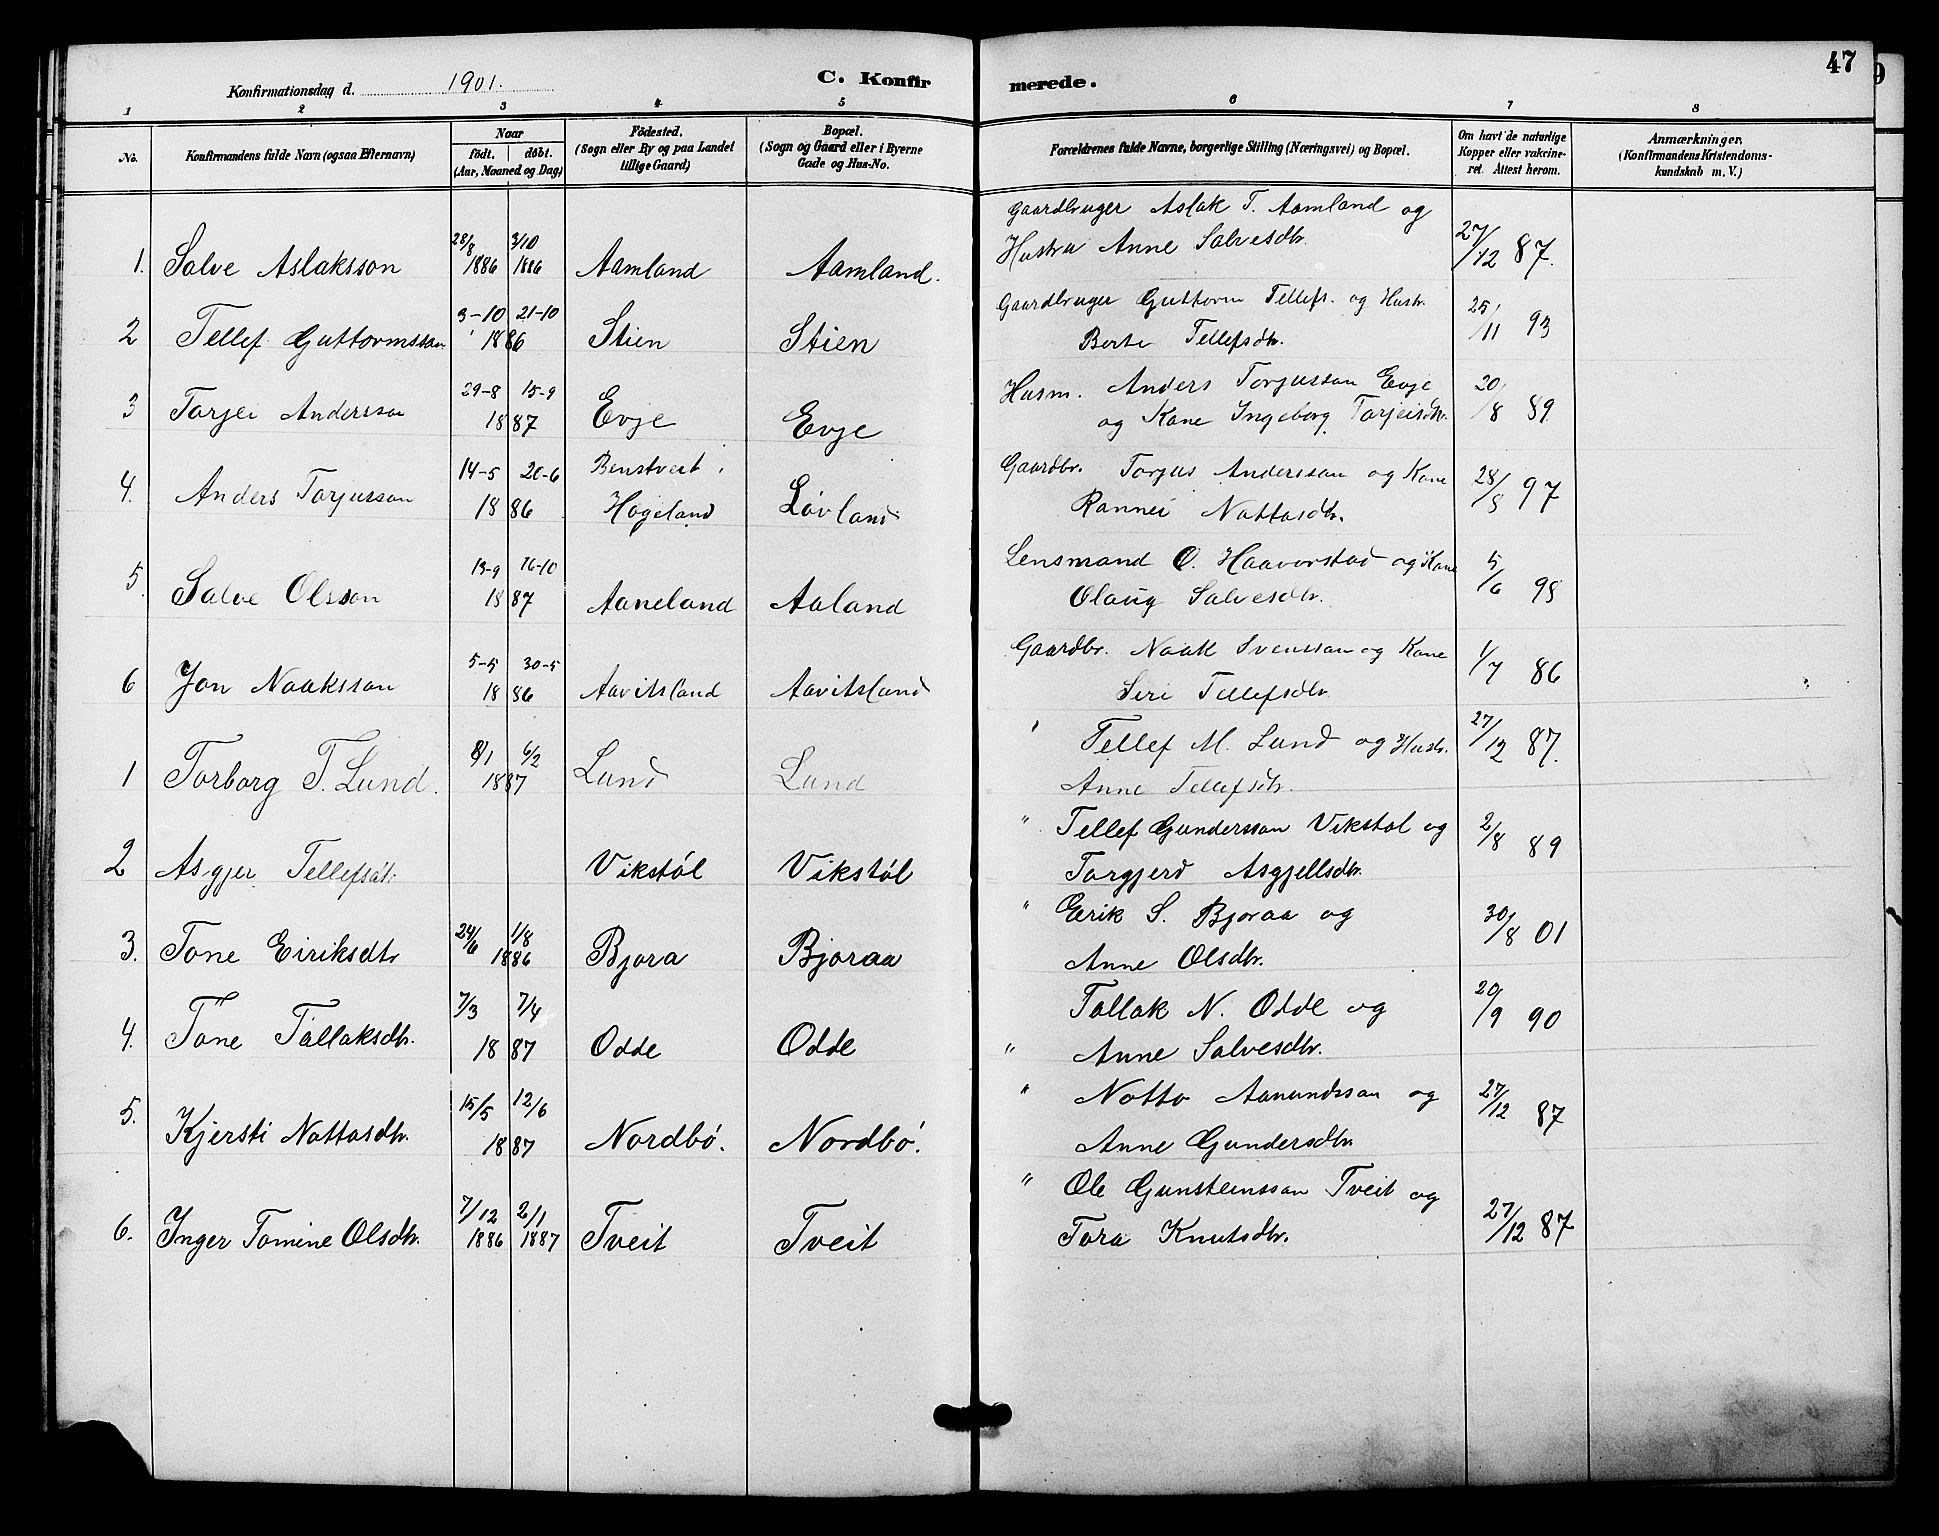 47
9
Konfirmationsdag d. 1901. C. Konfir merede.
1 2 3 4 5 6 7 8
No. Konfirmandens fulde Navn (ogsaa Efternavn) Naar födt. döbt. (Aar, Maaned og Dag) Födested. (Sogn eller By og paa Landet tillige Gaard) Bopæl. (Sogn og Gaard eller i Byerne Gade og Hus-No. Forældrenes fulde Navne, borgerlige Stilling (Næringsvei) og Bopæl. Om havt de naturlige Kopper eller vakcineret. Attest herom. Anmærkninger. (Konfirmandens Kristendomskundskab m. V.)
Gaardbruger Aslak T. Aamland og
28/8 3/10 Hustru Anne Salvesdtr. 27/12 87.
1. Salve Aslaksson 1886 1886 Aamland Aamland.
3-10 21-10 Gaardbruger Guttorm Tellefs. og Hustr. 25/11 93
2 Tellef Guttormsson 1886 Stien Stien Berte Tellefsdtr.
29-8 15-9 Husm. Anders Torjusson Evje 20/8 89
3 Torjei Andersson 1887 Evje Evje og Kone Ingeborg Torjeisdtr.
14-5 20-6 Gaardbr. Torjus Andersson og Kone 28/8 97
4. Anders Torjusson 1886 Høgeland Løvland Rannei Nottosdtr.
13-9 16-10 Lensmand O. Haavorstad og Kone 5/6 98
5. Salve Olsson 1887 Aaneland Aaland Olaug Salvesdtr.
5-5 30-5 Gaardbr. Noak Svensson og Kone 1/7 86
6 Jon Noaksson 1886 Aavitsland Aavitsland Siri Tellefsdtr.
8/1 6/2 " Tellef M. Lund og Hustr. 27/12 87.
1 Torborg T. Lund. 1887 Lund Lund Anne Tellefsdtr.
" Tellef Gundersson Vikstøl og 2/8 89
2 Asgjer Tellefsdtr Vikstøl Vikstøl Torgjerd Asgjellsdtr.
24/6 1/8 " Eerik S. Bjoraa og 30/8 01
3. Tone Eiriksdtr 1886 Bjora Bjoraa Anne Olsdtr.
7/3 7/4 Tallak N. Odde og 20/9 90
4. Tone Tallaksdtr. 1887 Odde Odde " Anne Salvesdtr.
15/5 12/6 " Notto Aamundsson og 27/12 87
5. Kjersti Nottosdtr. 1887 Nordbø. Nordbø. Anne Gundersdtr
7/12 2/1 " Ole Gunsteinsson Tveit og 27/12 87
6. Inger Tomine Olsdtr. 1886 1887 Tveit Tveit Tora Knutsdtr.